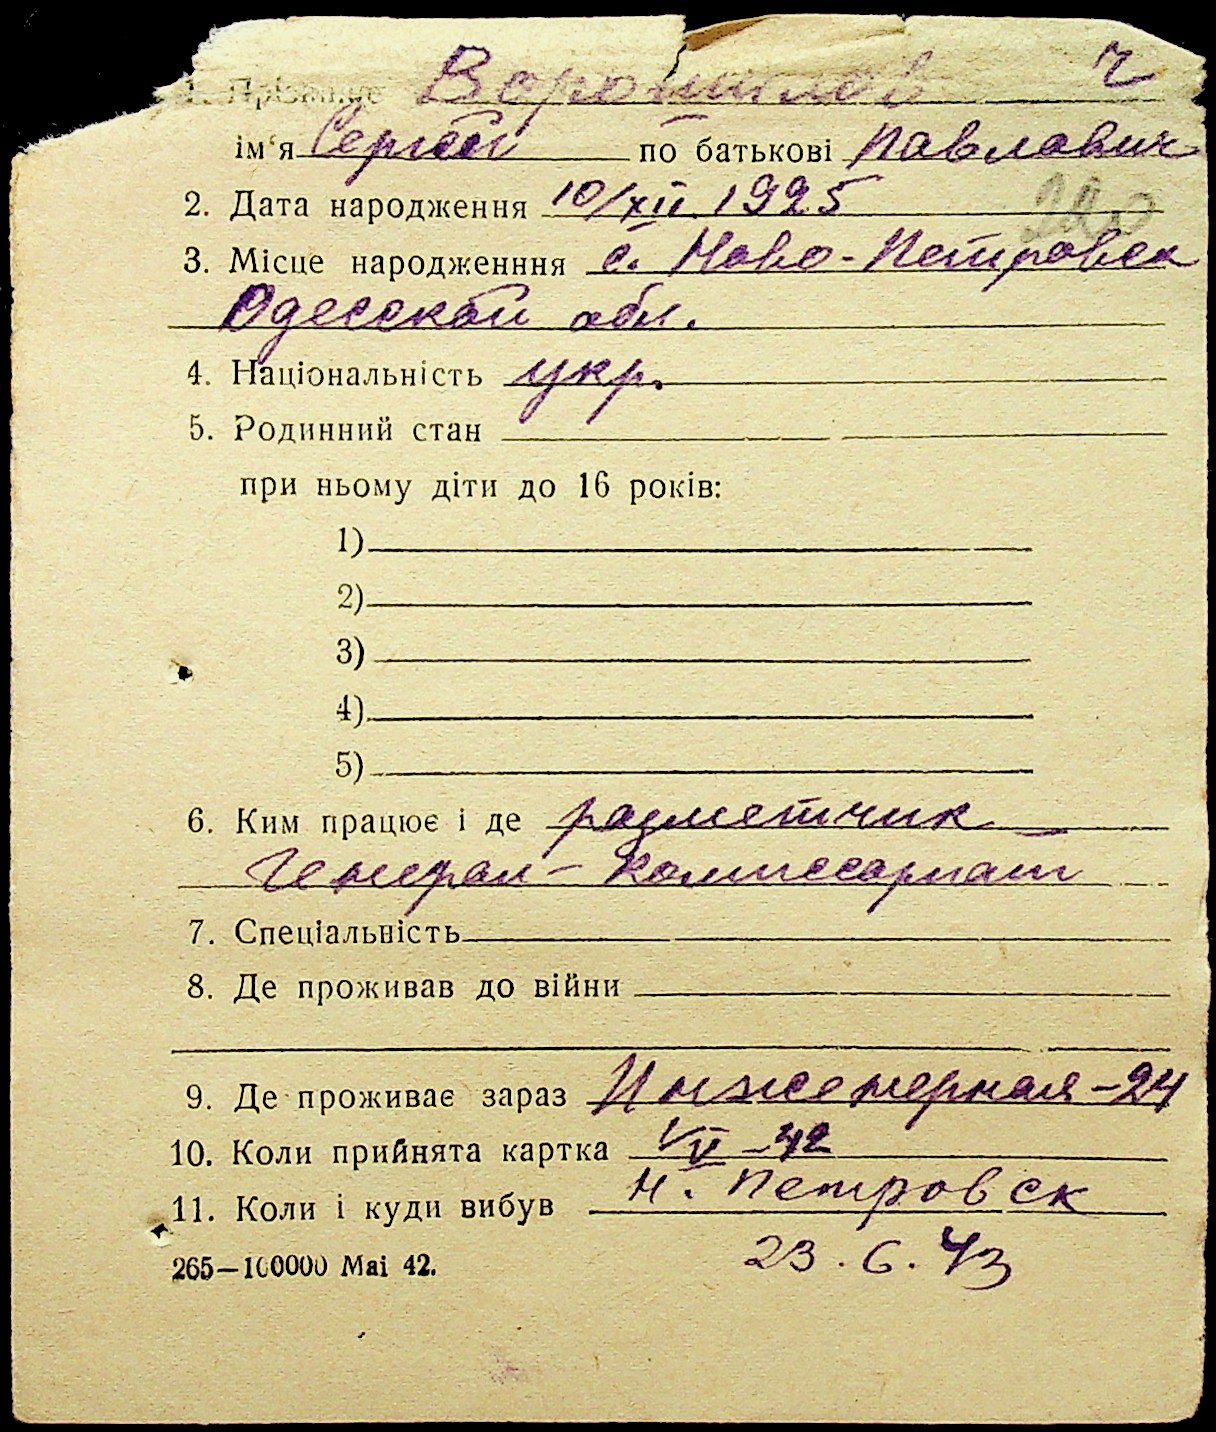 1. Прізвище Ворошилов Ч
ім'я Сергей по батькові Павлович
2. Дата народження 10/XII. 1925
220
3. Місце народженння с. Ново-Петровск
Одесской обл.
4. Національність укр.
5. Родинний стан
при ньому діти до 16 років:
1)
2)
3)
4)
5)
6. Ким працює і де разметчик
Генерал-комиссариат
7. Спеціальність
8. Де проживав до війни
9. Де проживає зараз Инженерная-24
10. Коли прийнята картка VI-42
11. Коли і куди вибув Н. Петровск
265—100000 Маі 42. 23.6.43